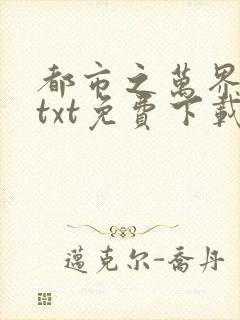 都市之萬界
txt免費下載
邁克尔-喬丹